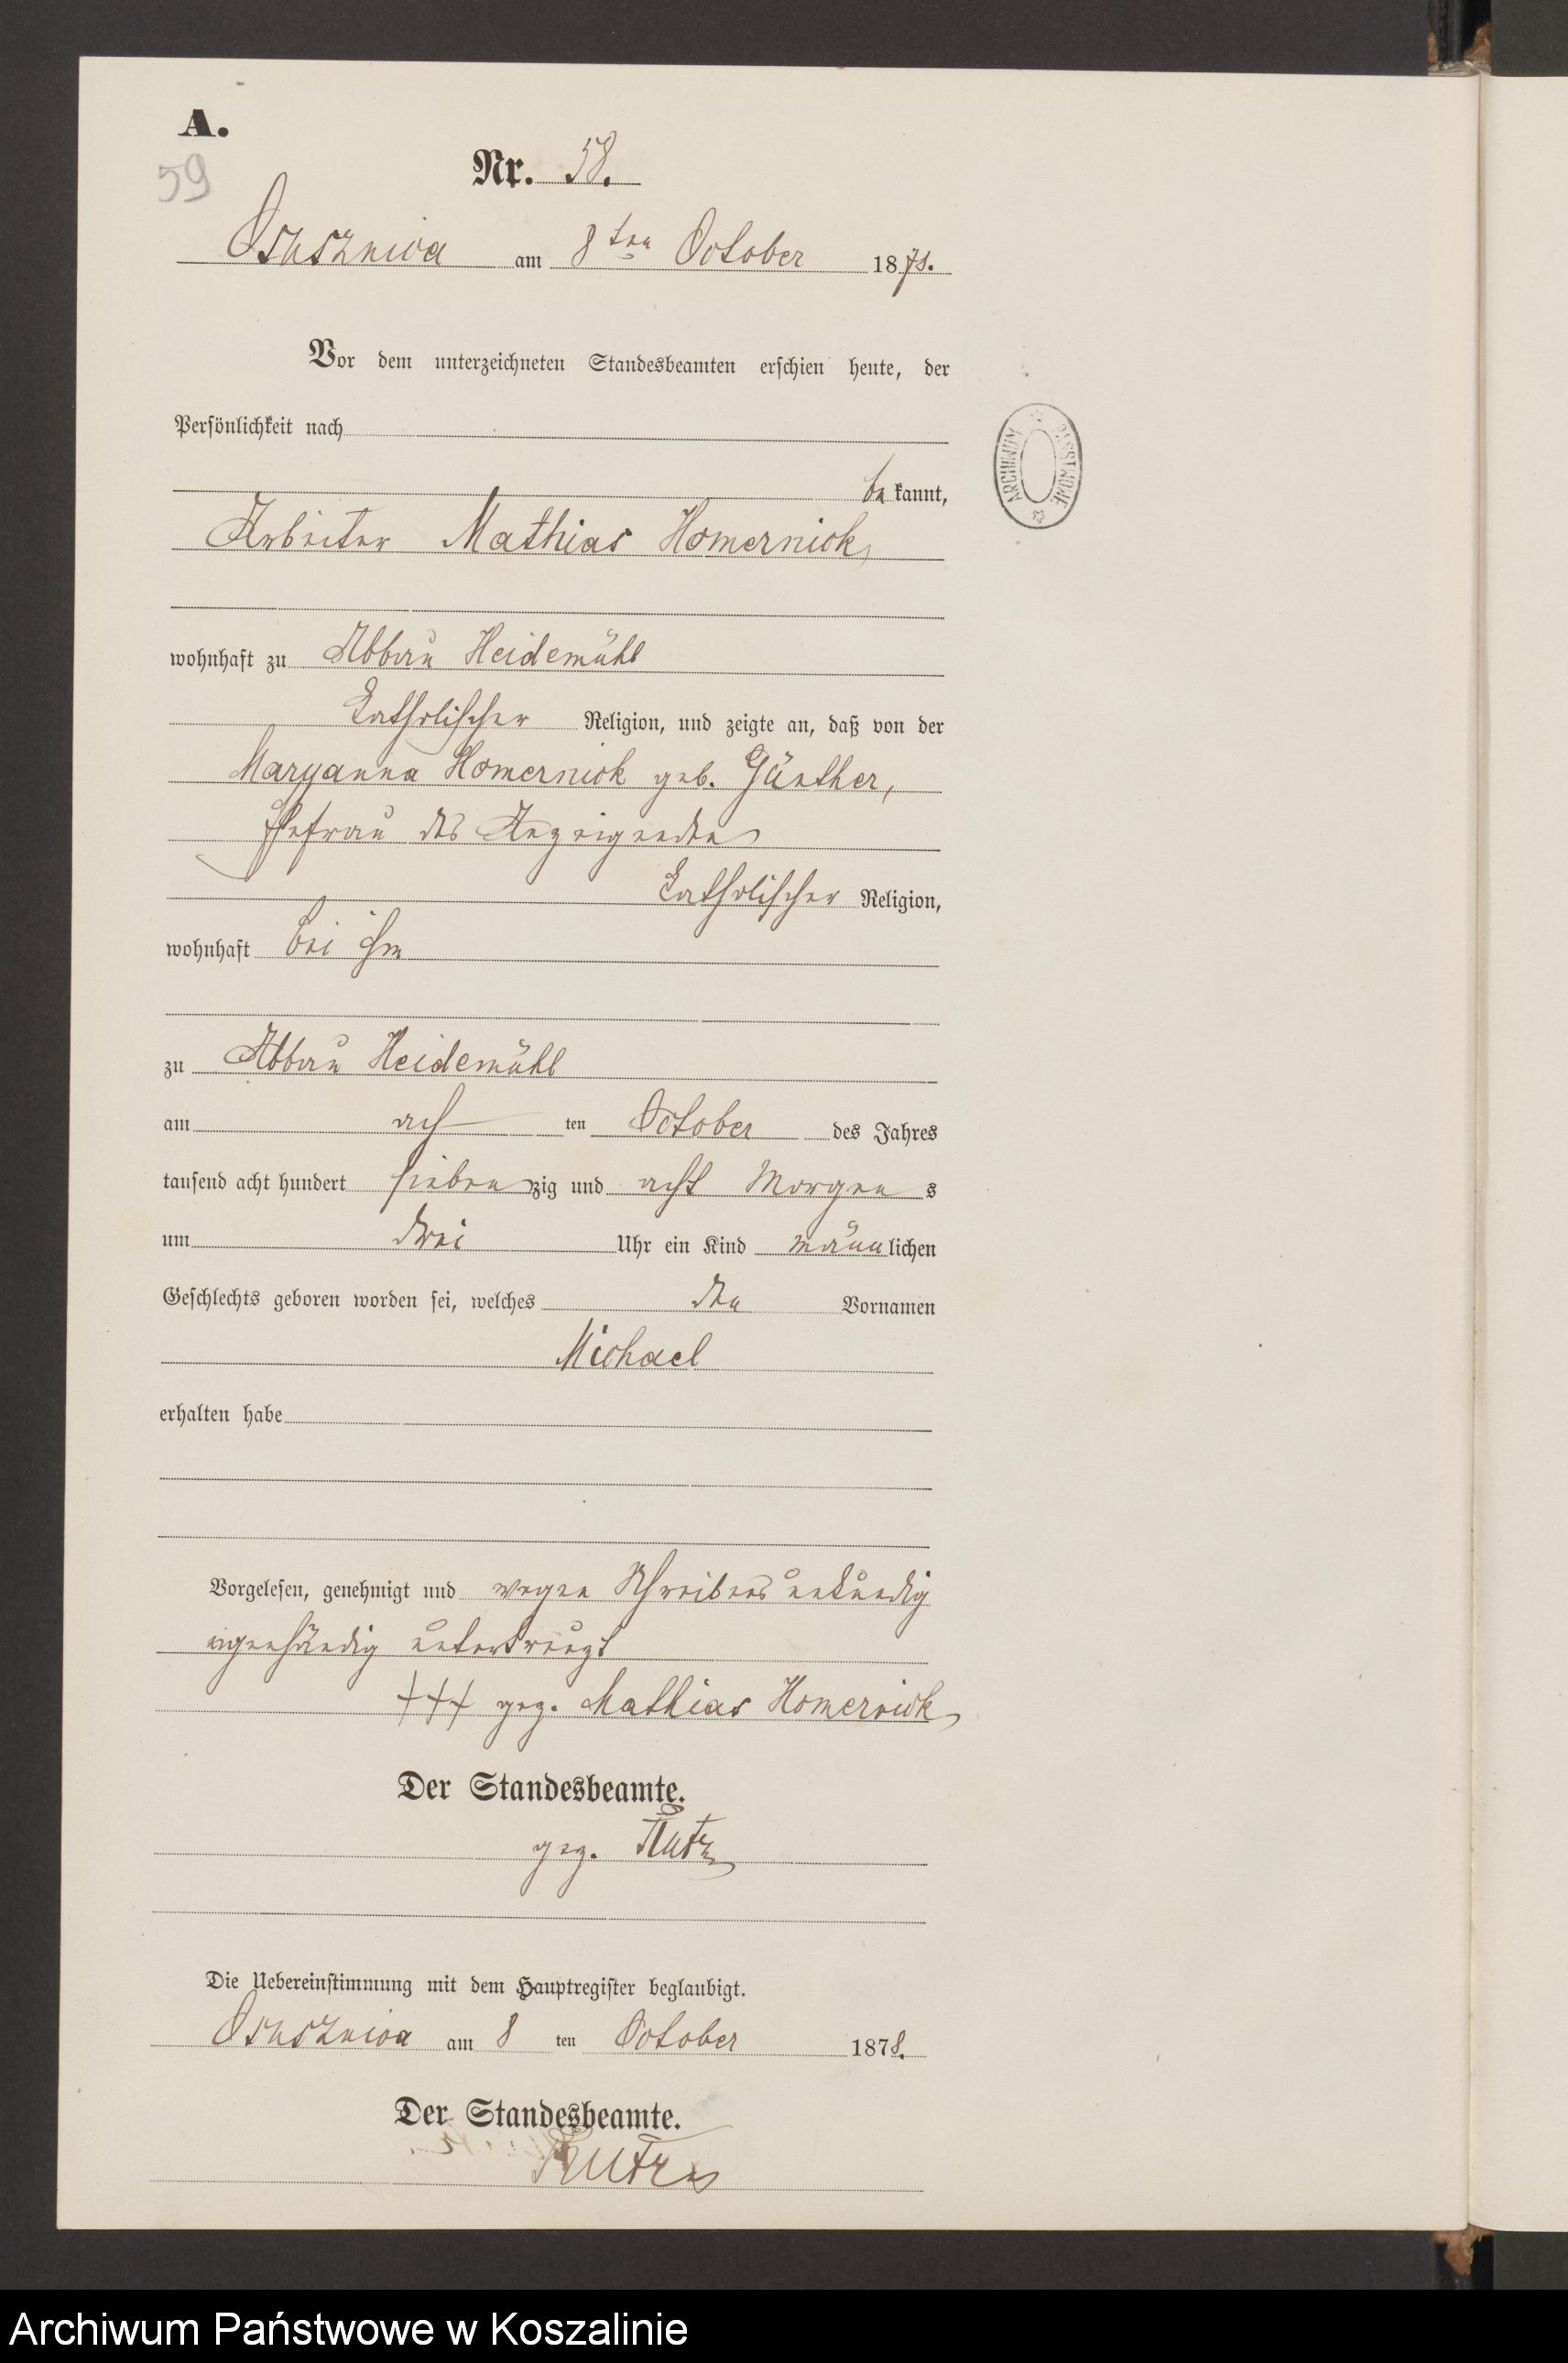 A.
59
Nr. 58.
Osusznica am 8ten October 1878.
Vor dem unterzeichneten Standesbeamten erschien heute, der
Persönlichkeit nach
bekannt,
Arbeiter Mathias Homernick,
wohnhaft zu Abbau Heidemühl
katholischer Religion, und zeigte an, daß von der
Maryanna Homernick geb. Günther,
Ehefrau des Anzeigenden
katholischer Religion,
wohnhaft bei ihm
zu Abbau Heidemühl
am ach ten October des Jahres
tausend acht hundert siebenzig und acht Morgens
um drei Uhr ein Kind männlichen
Geschlechts geboren worden sei, welches den Vornamen
Michael
erhalten habe
Vorgelesen, genehmigt und wegen Schreibens unkundig
eigenhändig unterkreuzt
+++ gez. Mathias Homernick
Der Standesbeamte.
gez. Rutz
Die Uebereinstimmung mit dem Hauptregister beglaubigt.
Osusznica am 8 ten October 1878.
Der Standesbeamte.
Rutz
ARCHIWUM PAŃSTWOWE
Archiwum Państwowe w Koszalinie